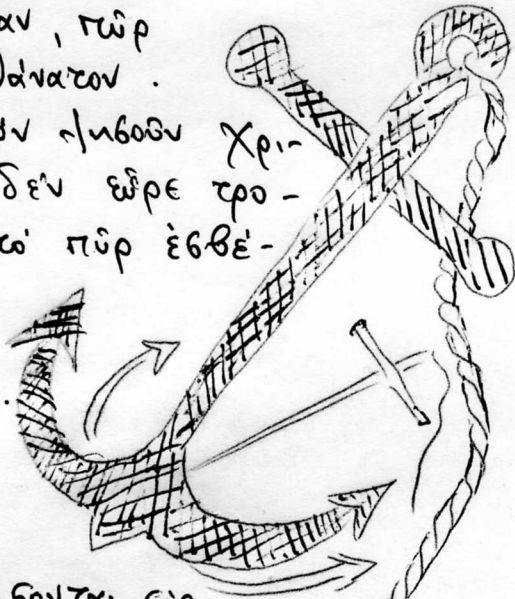 αν, πῦρ
θάνατον.
ὸν Ἰησοῦν Χρι-
δὲν εὗρε τρο-
τὸ πῦρ ἐσβέ-
σονται εἰς